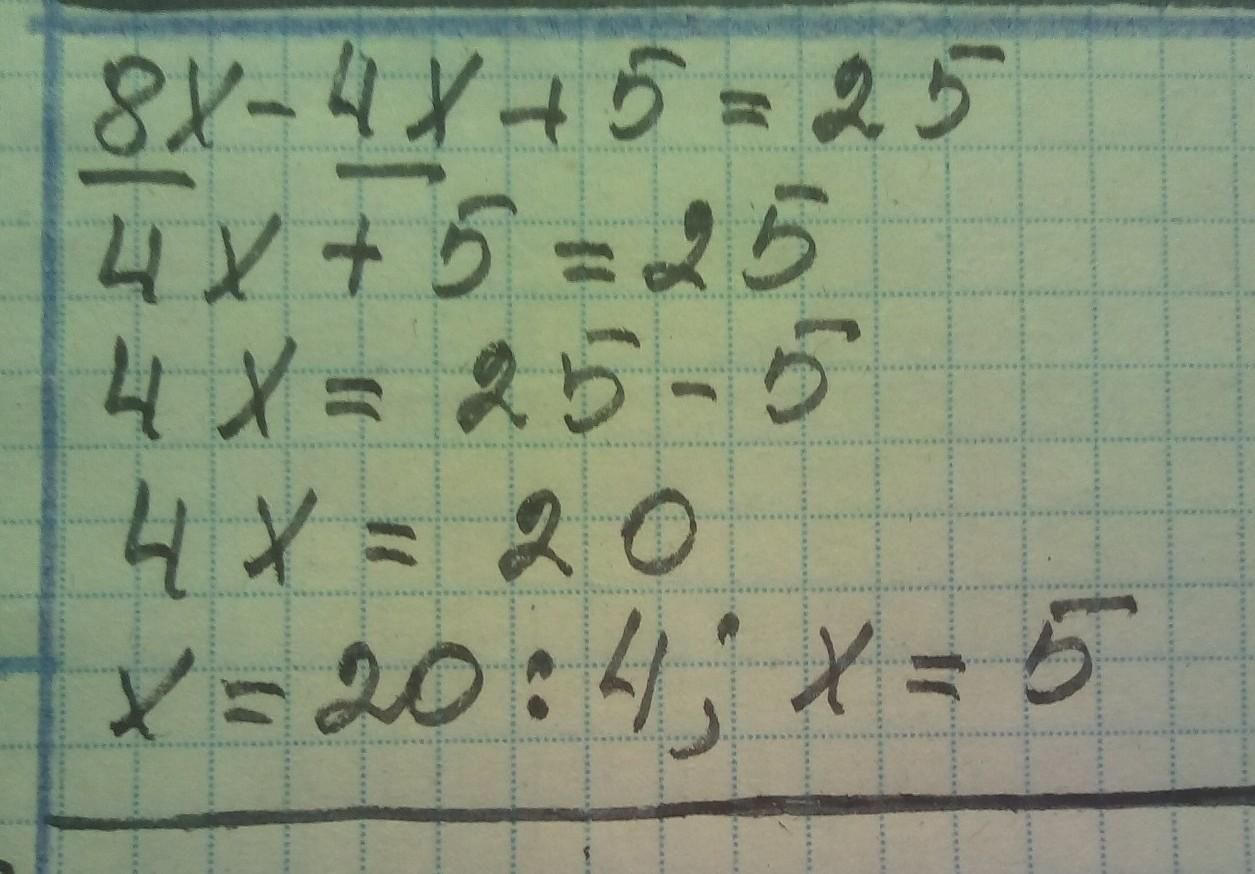 8x - 4x + 5 = 25
4x + 5 = 25
4x = 25 - 5
4x = 20
x = 20 : 4; x = 5